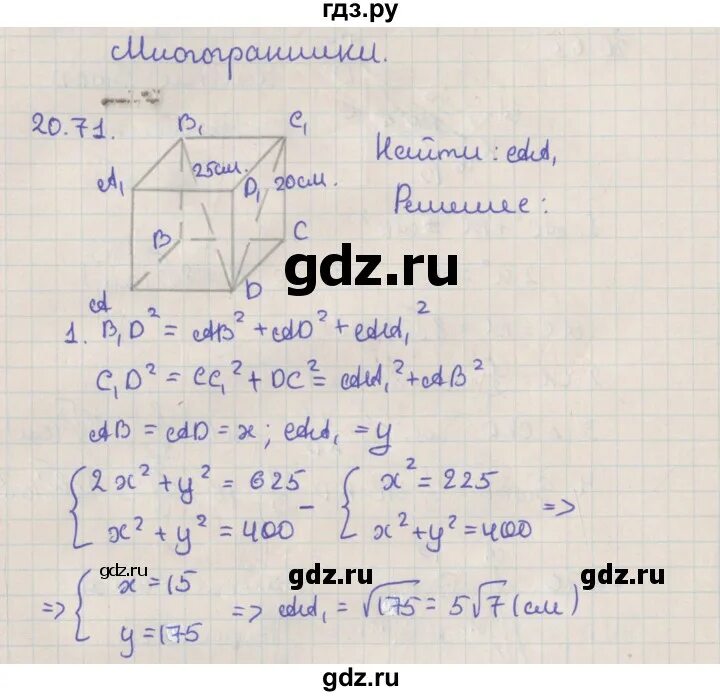 гдз.ру
Многогранники.
20.71.
B₁
C₁
25см.
20см.
Найти: AA₁
A₁
D₁
Решение:
B
C
gdz.ru
A
D
1. B₁D² = AB² + AD² + AA₁²
C₁D² = CC₁² + DC² = AA₁² + AB²
AB = AD = x; AA₁ = y
{ 2x² + y² = 625 - { x² = 225
x² + y² = 400 x² + y² = 400 =>
gdz.ru
gdz.ru
gdz.ru
=> { x = 15 => AA₁ = √175 = 5√7 (см)
y = 175
gdz.ru